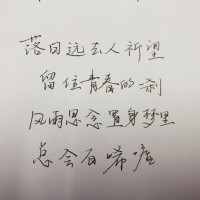 落日远去人祈望
留住青春的一刹
风雨思念置身梦里
总会有唏嘘